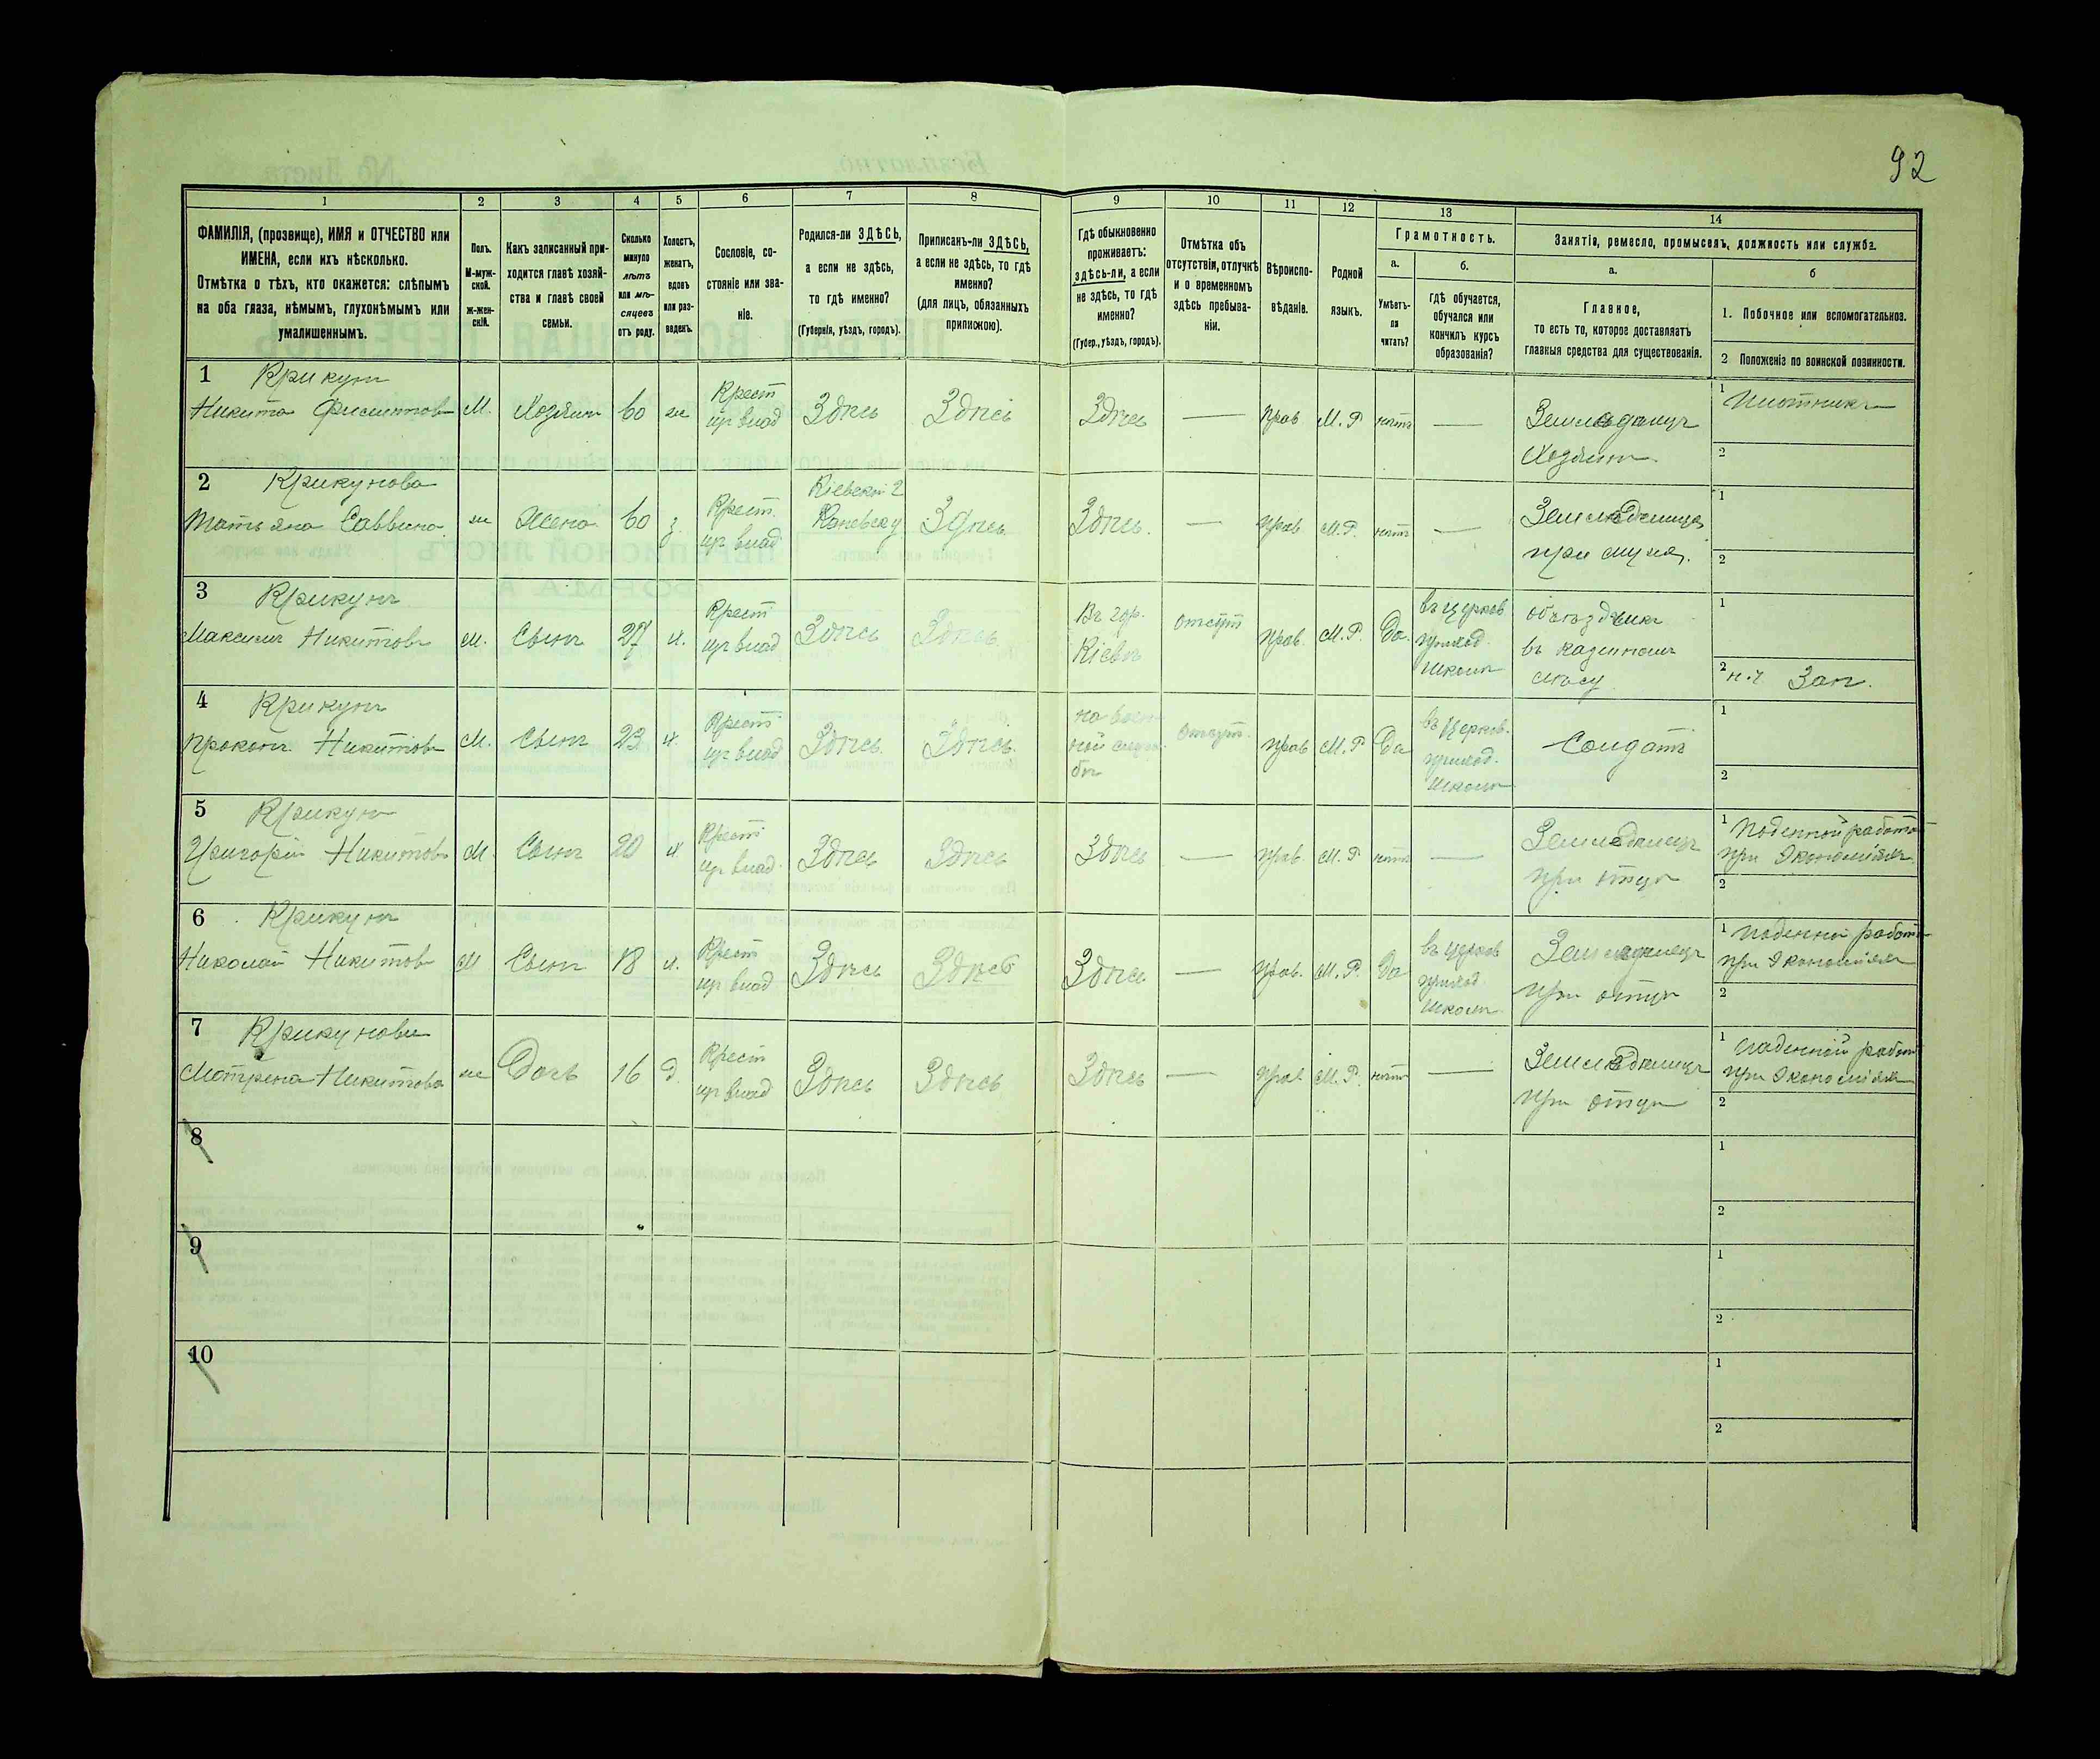 92
1 2 3 4 5 6 7 8 9 10 11 12 13 14
ФАМИЛІЯ, (прозвище), ИМЯ и ОТЧЕСТВО или
ИМЕНА, если ихъ нѣсколько.
Отмѣтка о тѣхъ, кто окажется: слѣпымъ
на оба глаза, нѣмымъ, глухонѣмымъ или
умалишеннымъ.
Полъ.
М-муж-
ской.
ж-жен-
скій.
Какъ записанный при-
ходится главѣ хозяй-
ства и главѣ своей
семьи.
Сколько
минуло
лѣтъ
или мѣ-
сяцевъ
отъ роду.
Холостъ,
женатъ,
вдовъ
или раз-
веденъ.
Сословіе, со-
стояніе или зва-
ніе.
Родился-ли ЗДѢСЬ,
а если не здѣсь,
то гдѣ именно?
(Губернія, уѣздъ, городъ).
Приписанъ-ли ЗДѢСЬ,
а если не здѣсь, то гдѣ
именно?
(для лицъ, обязанныхъ
припискою).
Гдѣ обыкновенно
проживаетъ:
здѣсь-ли, а если
не здѣсь, то гдѣ
именно?
(Губер., уѣздъ, городъ).
Отмѣтка объ
отсутствіи, отлучкѣ
и о временномъ
здѣсь пребыва-
ніи.
Вѣроиспо-
вѣданіе.
Родной
языкъ.
Грамотность.
а.
Умѣетъ-
ли
читать?
б.
гдѣ обучается,
обучался или
кончилъ курсъ
образованія?
Занятія, ремесло, промыселъ, должность или служба.
а.
Главное,
то есть то, которое доставляетъ
главныя средства для существованія.
б
1. Побочное или вспомогательное.
2 Положеніе по воинской повинности.
1 Крикунъ
Никита М. Хозяинъ 60 ж Крест Здѣсь Здѣсь Здѣсь — прав М. Р нѣтъ —
влад
Хозяинъ
1 Плотникъ
2
2 Крикунова
Татьяна Саввина ж Жена 60 з. Крест. Кіевскій г Каневску Здѣсь Здѣсь. — прав М.Р. нѣтъ —
влад
при мужѣ.
1
2
3 Крикунъ
Максимъ Никитовъ М. Сынъ 27 х. Крест Здѣсь Здѣсь
влад
Въ гор.
Кіевѣ
отсут прав. М.Р. Да.
въ церков
приход.
школѣ
объѣздчикъ
въ казенномъ
лѣсу
1
2 н.ч Зап.
4 Крикунъ
Прокопъ Никитовъ М. Сынъ 23 х. Крест Здѣсь. Здѣсь.
влад
на воен
ной служ
бѣ
Отсут. прав М.Р Да
въ церков.
приход.
школѣ
Солдатъ
1
2
5 Крикун
Григорій Никитовъ М. Сынъ 20 х Крест Здѣсь Здѣсь Здѣсь — прав. М. Р нѣтъ —
влад.
при отцѣ
1 Поденной работѣ
при Экономіяхъ
2
6 Крикунъ
Николай Никитовъ М Сынъ 18 х. Крест Здѣсь Здѣсь Здѣсь — прав. М.Р. Да
влад
въ церков
приход
школѣ
при отцѣ
1 Поденной работѣ
при Экономіяхъ
2
7 Крикунова
Мотрена Никитова ж Дочь 16 д. Крест Здѣсь Здѣсь Здѣсь — прав. М.Р. нѣтъ —
влад
при отцѣ
1 Поденной работѣ
при Экономіяхъ
2
8
1
2
9
1
2
10
1
2